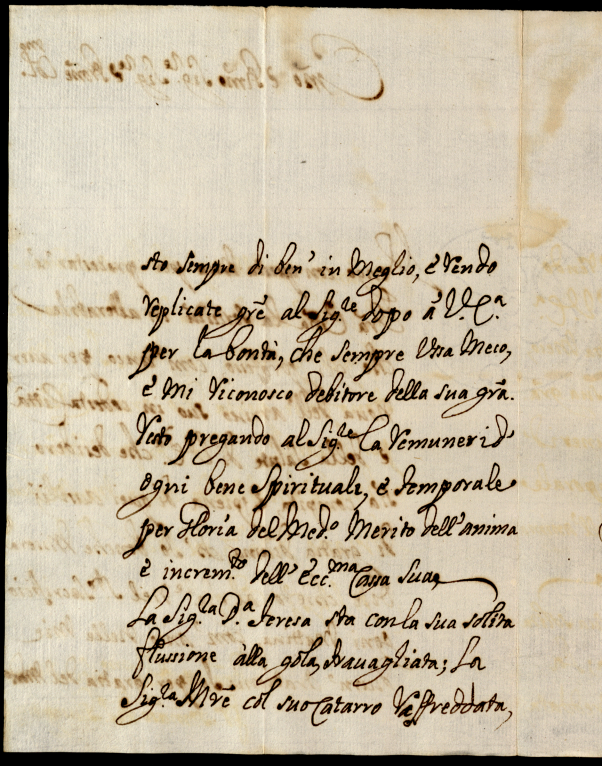 sto sempre di ben' in Meglio, è rendo
replicate grē al Sig.re dopo à V. E.a
per la bontà, che sempre usa Meco,
è Mi riconosco debitore della sua grā.
resto pregando al Sig.re La remuneri d'
ogni bene Spirituale, è temporale
per Gloria del Med.o Merito dell'anima
è increm.to dell' Ecc.ma Casa sua,
La Sig.ra D.a Teresa sta con la sua solita
flussione alla gola, travagliata; La
Sig.ra Mrē col suo Catarro raffreddata,